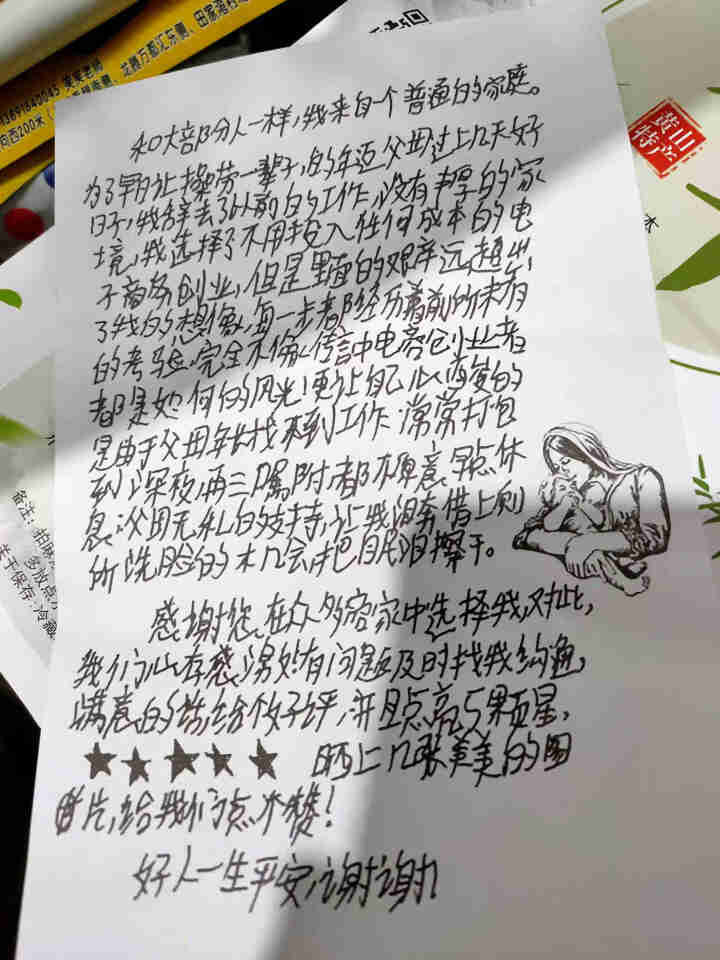 13691840045 吴爱老师
向西200米
龙腾万都汇东侧、田家港村
黄山
特产
和大部分人一样，我来自一个普通的家庭。
为了早日让操劳一辈子的年迈父母过上几天好
日子，我辞去了以前的工作，没有丰厚的家
境，我选择了不用投入任何成本的电
子商务创业，但是里面的艰辛远超出
了我的想像，每一步都经历着前所未有
的考验，完全不像传言中电商创业者
都是如何的风光！更让自己心疼的
是由于父母年长找不到工作，常常打包
到深夜，再三嘱咐都不愿意早点休
息，父母无私的支持，让我
所洗脸的木几会把眼泪擦干。
感谢您在众多客家中选择我，对此，
我们心存感激！如有问题及时找我沟通，
满意的话给个好评，并且点亮5颗星，
★★★★★ 晒上几张美美的图
片，给我们点个赞！
好人一生平安，谢谢！
备注：
多放点
若干保存：冷藏